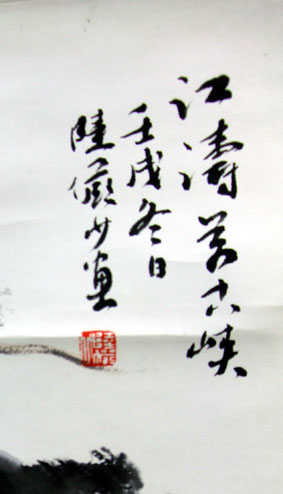 江濤萬古峽
壬戌冬日
陸儼少畫